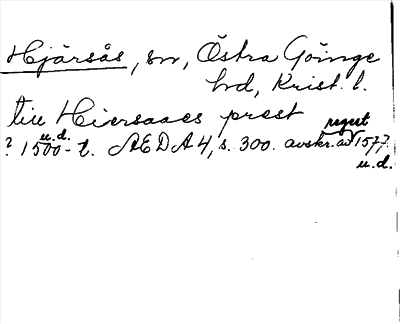 Hjärsås, sn, Östra Göinge
hd, Krist. l.
till Hiersaaes prest
u.d.
? 1500-t. ÆDA 4, s. 300. avskr. av 1577?
u.d.